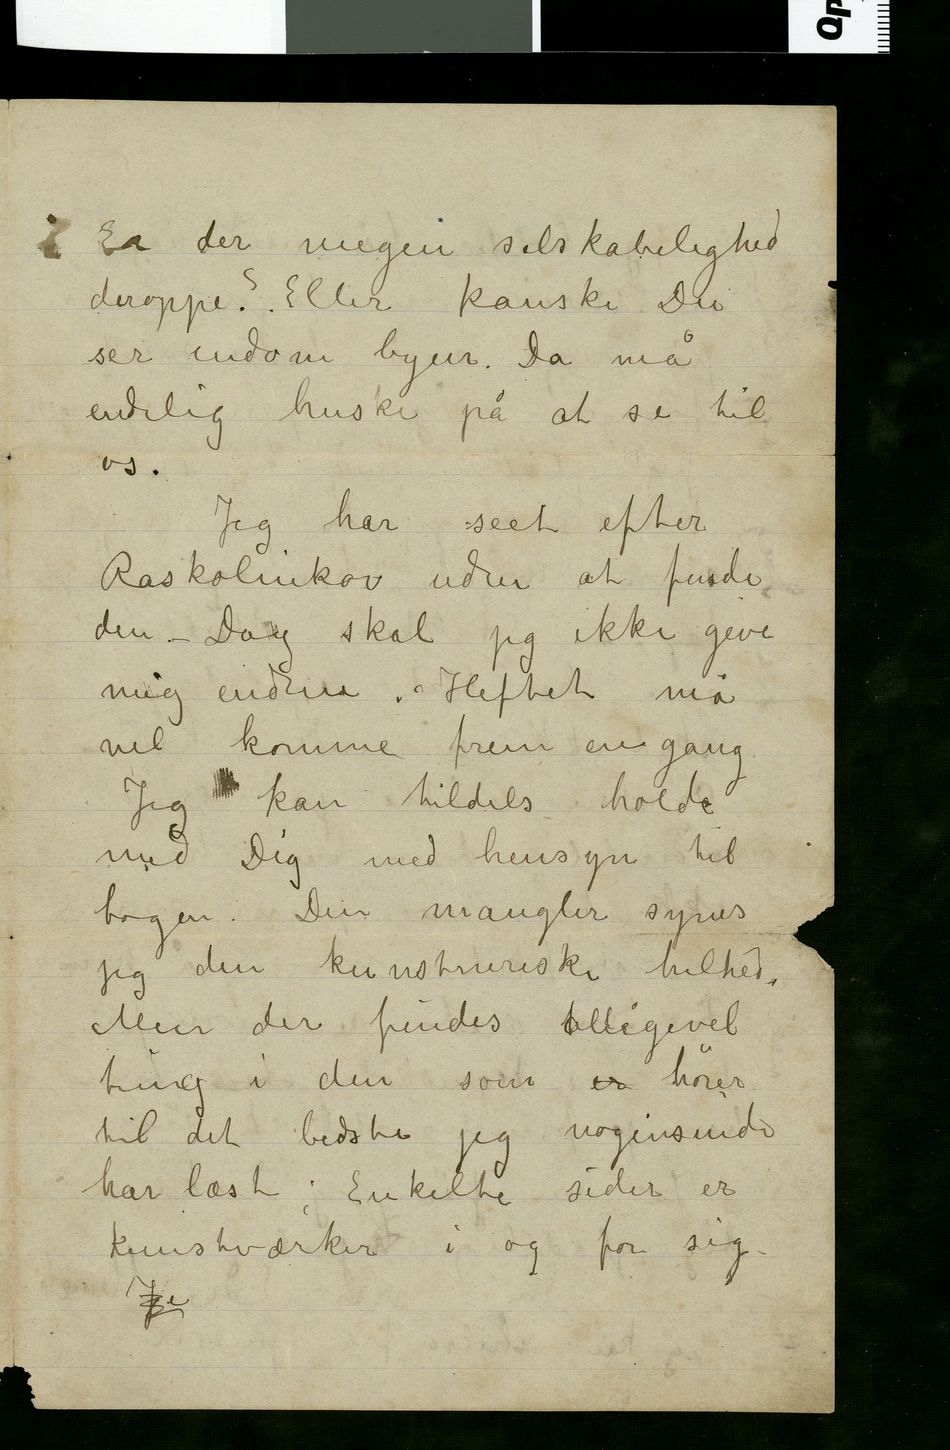 Er der megen selskabelighed
deroppe? Eller kanske Du
ser indom byen. Da må
endelig huske på at se til
os.
Jeg har seet efter
Raskolnikov uden at finde
den – Dog skal jeg ikke give
mig endnu. Heftet må
vel komme frem engang
Jeg kan tildels holde
med Dig med hensyn til
bogen. Den mangler synes
jeg den kunstneriske helhed.
Men der findes alligevel
ting i den som er hører
til det bedste jeg nogensinde
har læst; Enkelte sider er
kunstværker i og for sig.
Je